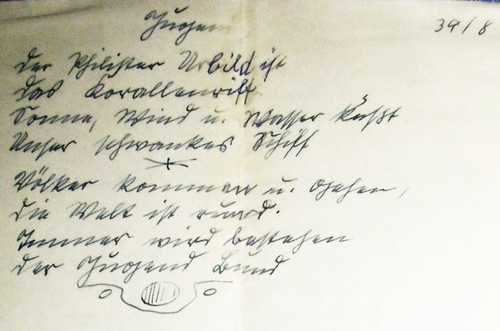 Jugend
39/8
Der Philister Urbild ist
das Korallenriff.
Sonne, Wind u. Wasser küßt
Unser schwankes Schiff
Völker kommen u. gehen,
die Welt ist rund.
Immer wird bestehen
der Jugend Bund